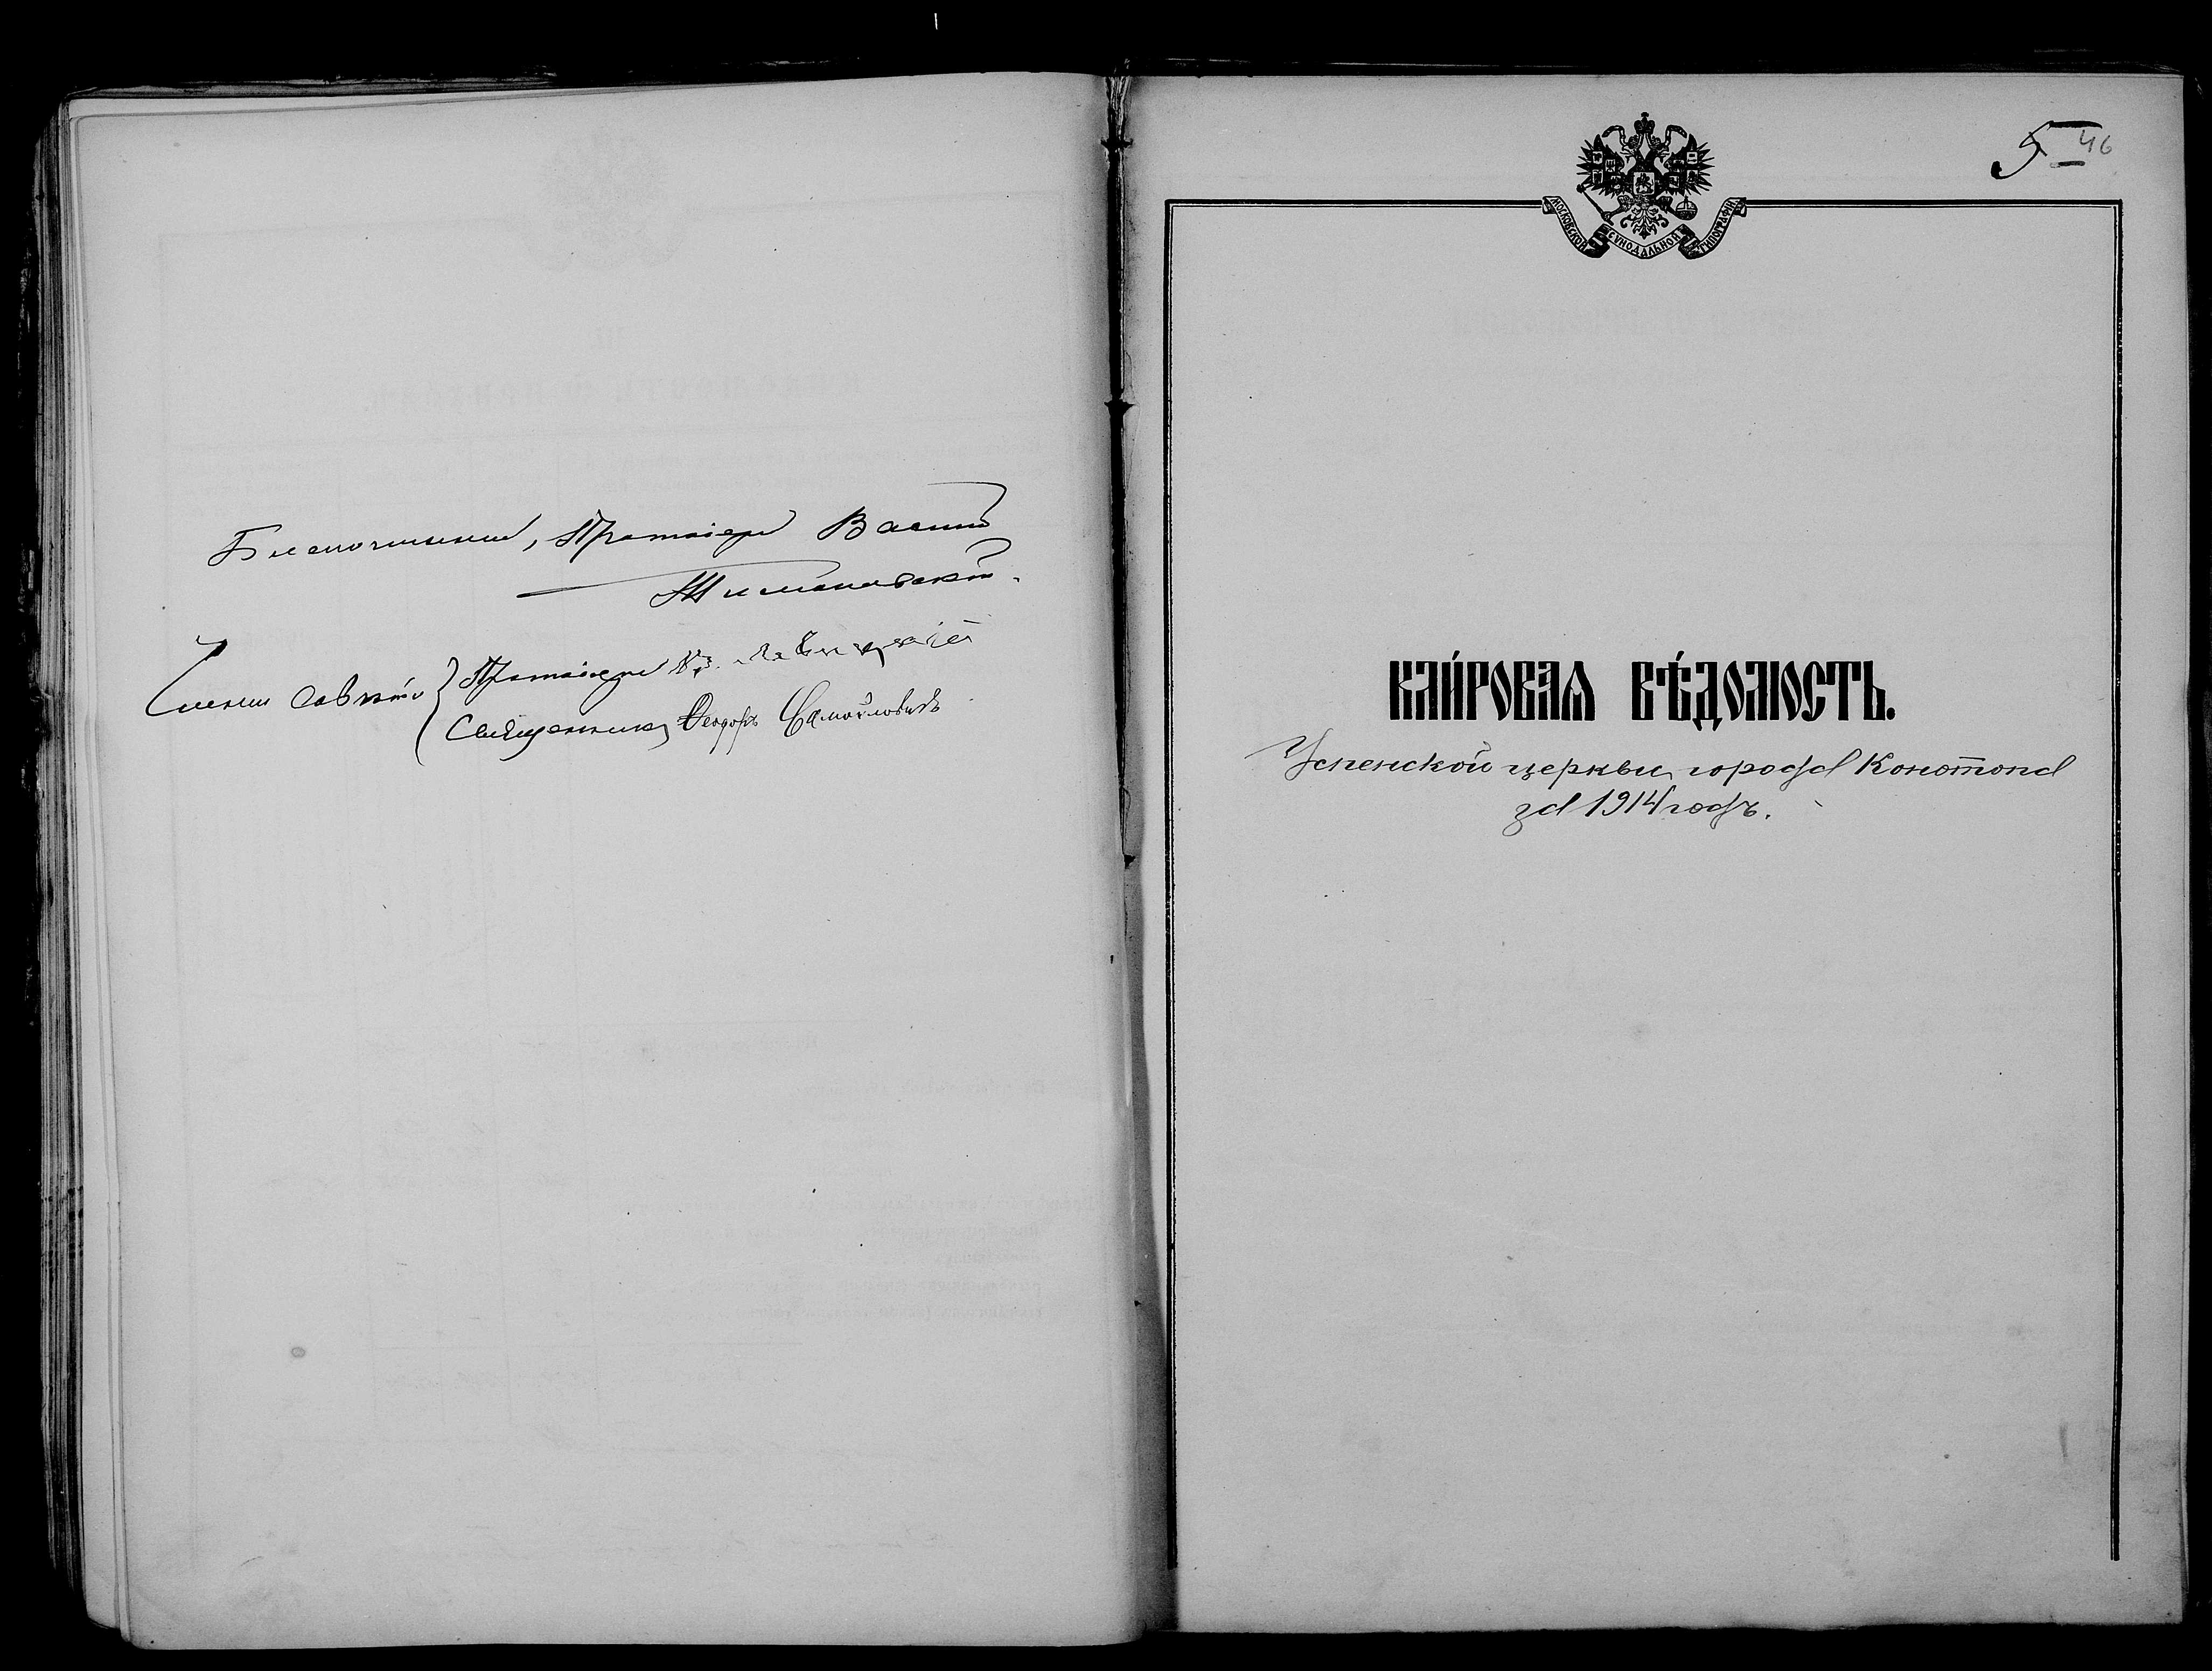 Благочинный, Протоіерей Василій
Члены Совѣта { Протоіерей
Священникъ Ѳеодоръ Самойловичъ
46
МОСКОВСКОЙ СУНОДАЛЬНОЙ ТИПОГРАФІИ
КЛИ́РОВАЯ ВѢ́ДОМОСТЬ.
Успенской церкви города Конотопа
за 1914 годъ.